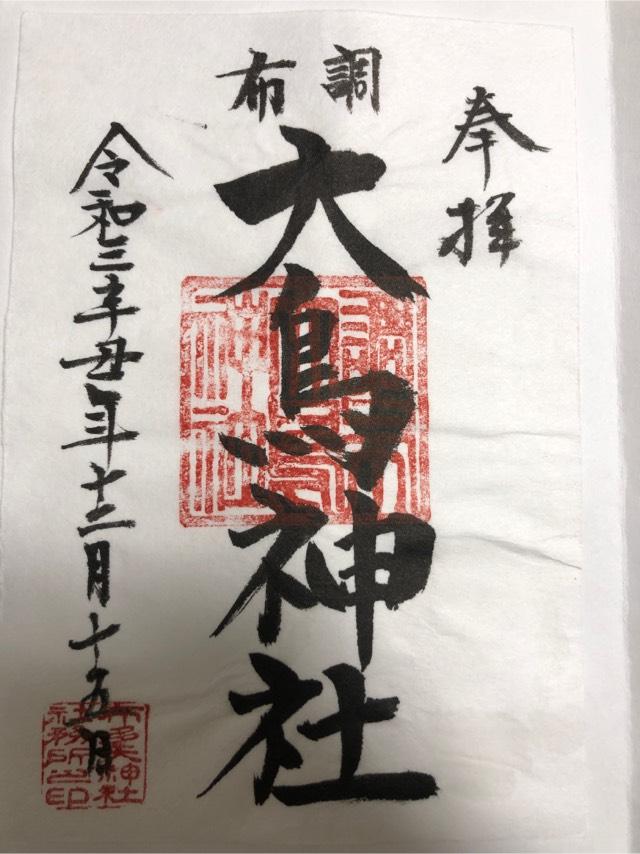 奉拝
調布
大鳥神社
令和三辛丑年十二月十五日
調布
大鳥
神社
布多天神社
社務所之印